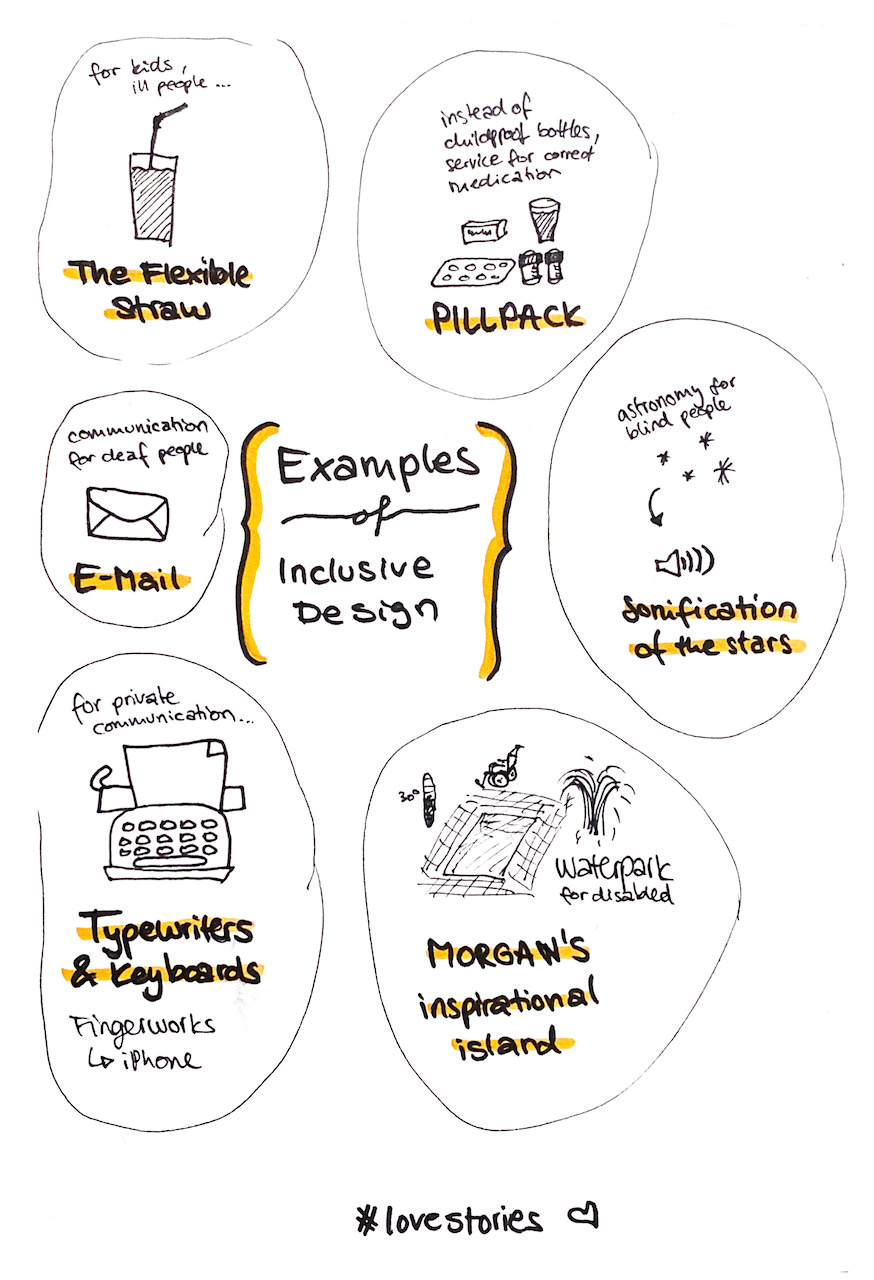 for kids,
ill people...
The Flexible
Straw
instead of
childproof bottles,
service for correct
medication
PILLPACK
communication
for deaf people
E-Mail
Examples
of
Inclusive
Design
astronomy for
blind people
Sonification
of the stars
for private
communication...
Typewriters
& Keyboards
Fingerworks
↳ iPhone
30°
Waterpark
for disabled
MORGAN'S
inspirational
island
#lovestories ♡